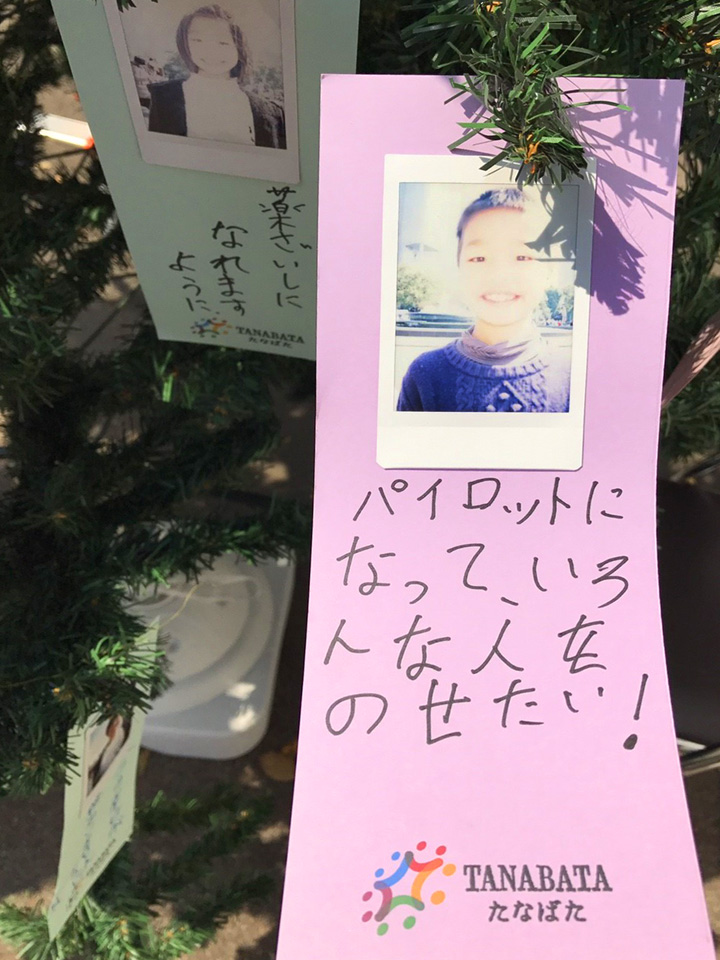 薬ざいしに
なれます
ように
TANABATA
たなばた
パイロットに
なって、いろ
んな人を
のせたい!
TANABATA
たなばた